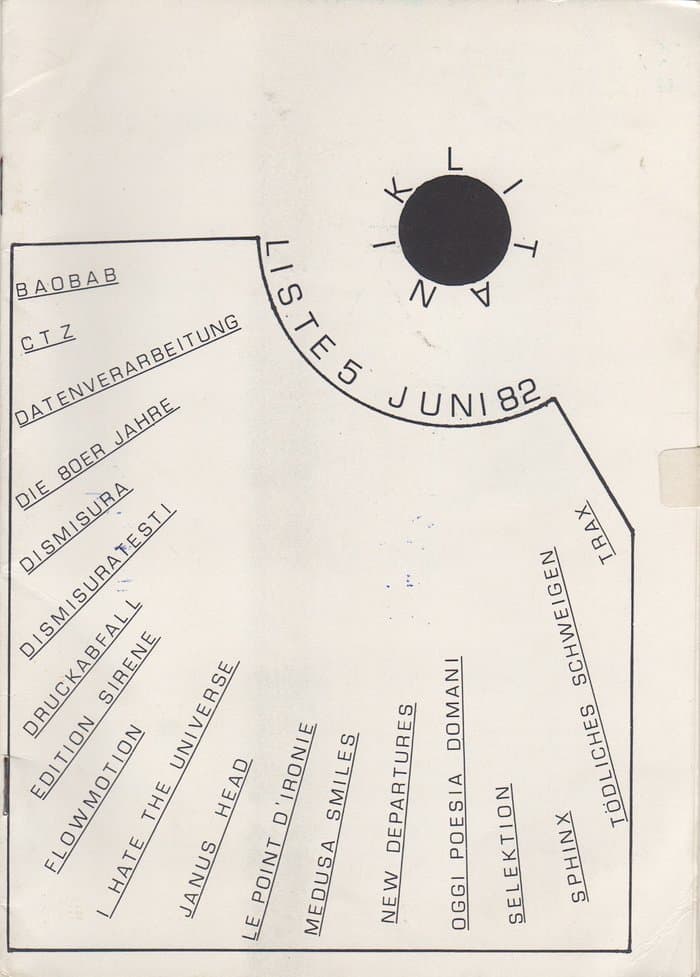 LITANIK
LISTE 5 JUNI 82
BAOBAB
CTZ
DATENVERARBEITUNG
DIE 80ER JAHRE
DISMISURA
DISMISURATESTI
DRUCKABFALL
EDITION SIRENE
FLOWMOTION
I HATE THE UNIVERSE
JANUS HEAD
LE POINT D'IRONIE
MEDUSA SMILES
NEW DEPARTURES
OGGI POESIA DOMANI
SELEKTION
SPHINX
TÖDLICHES SCHWEIGEN
TRAX